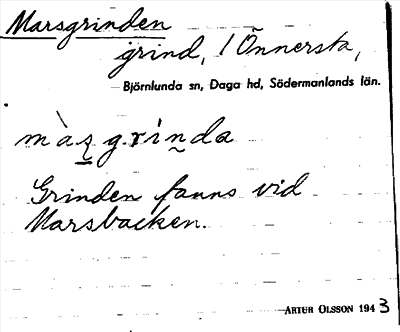 Marsgrinden
grind, / Önnersta,
Björnlunda sn, Daga hd, Södermanlands län.
màz̠grin̰da
Grinden fanns vid
Marsbacken.
ARTUR OLSSON 1943